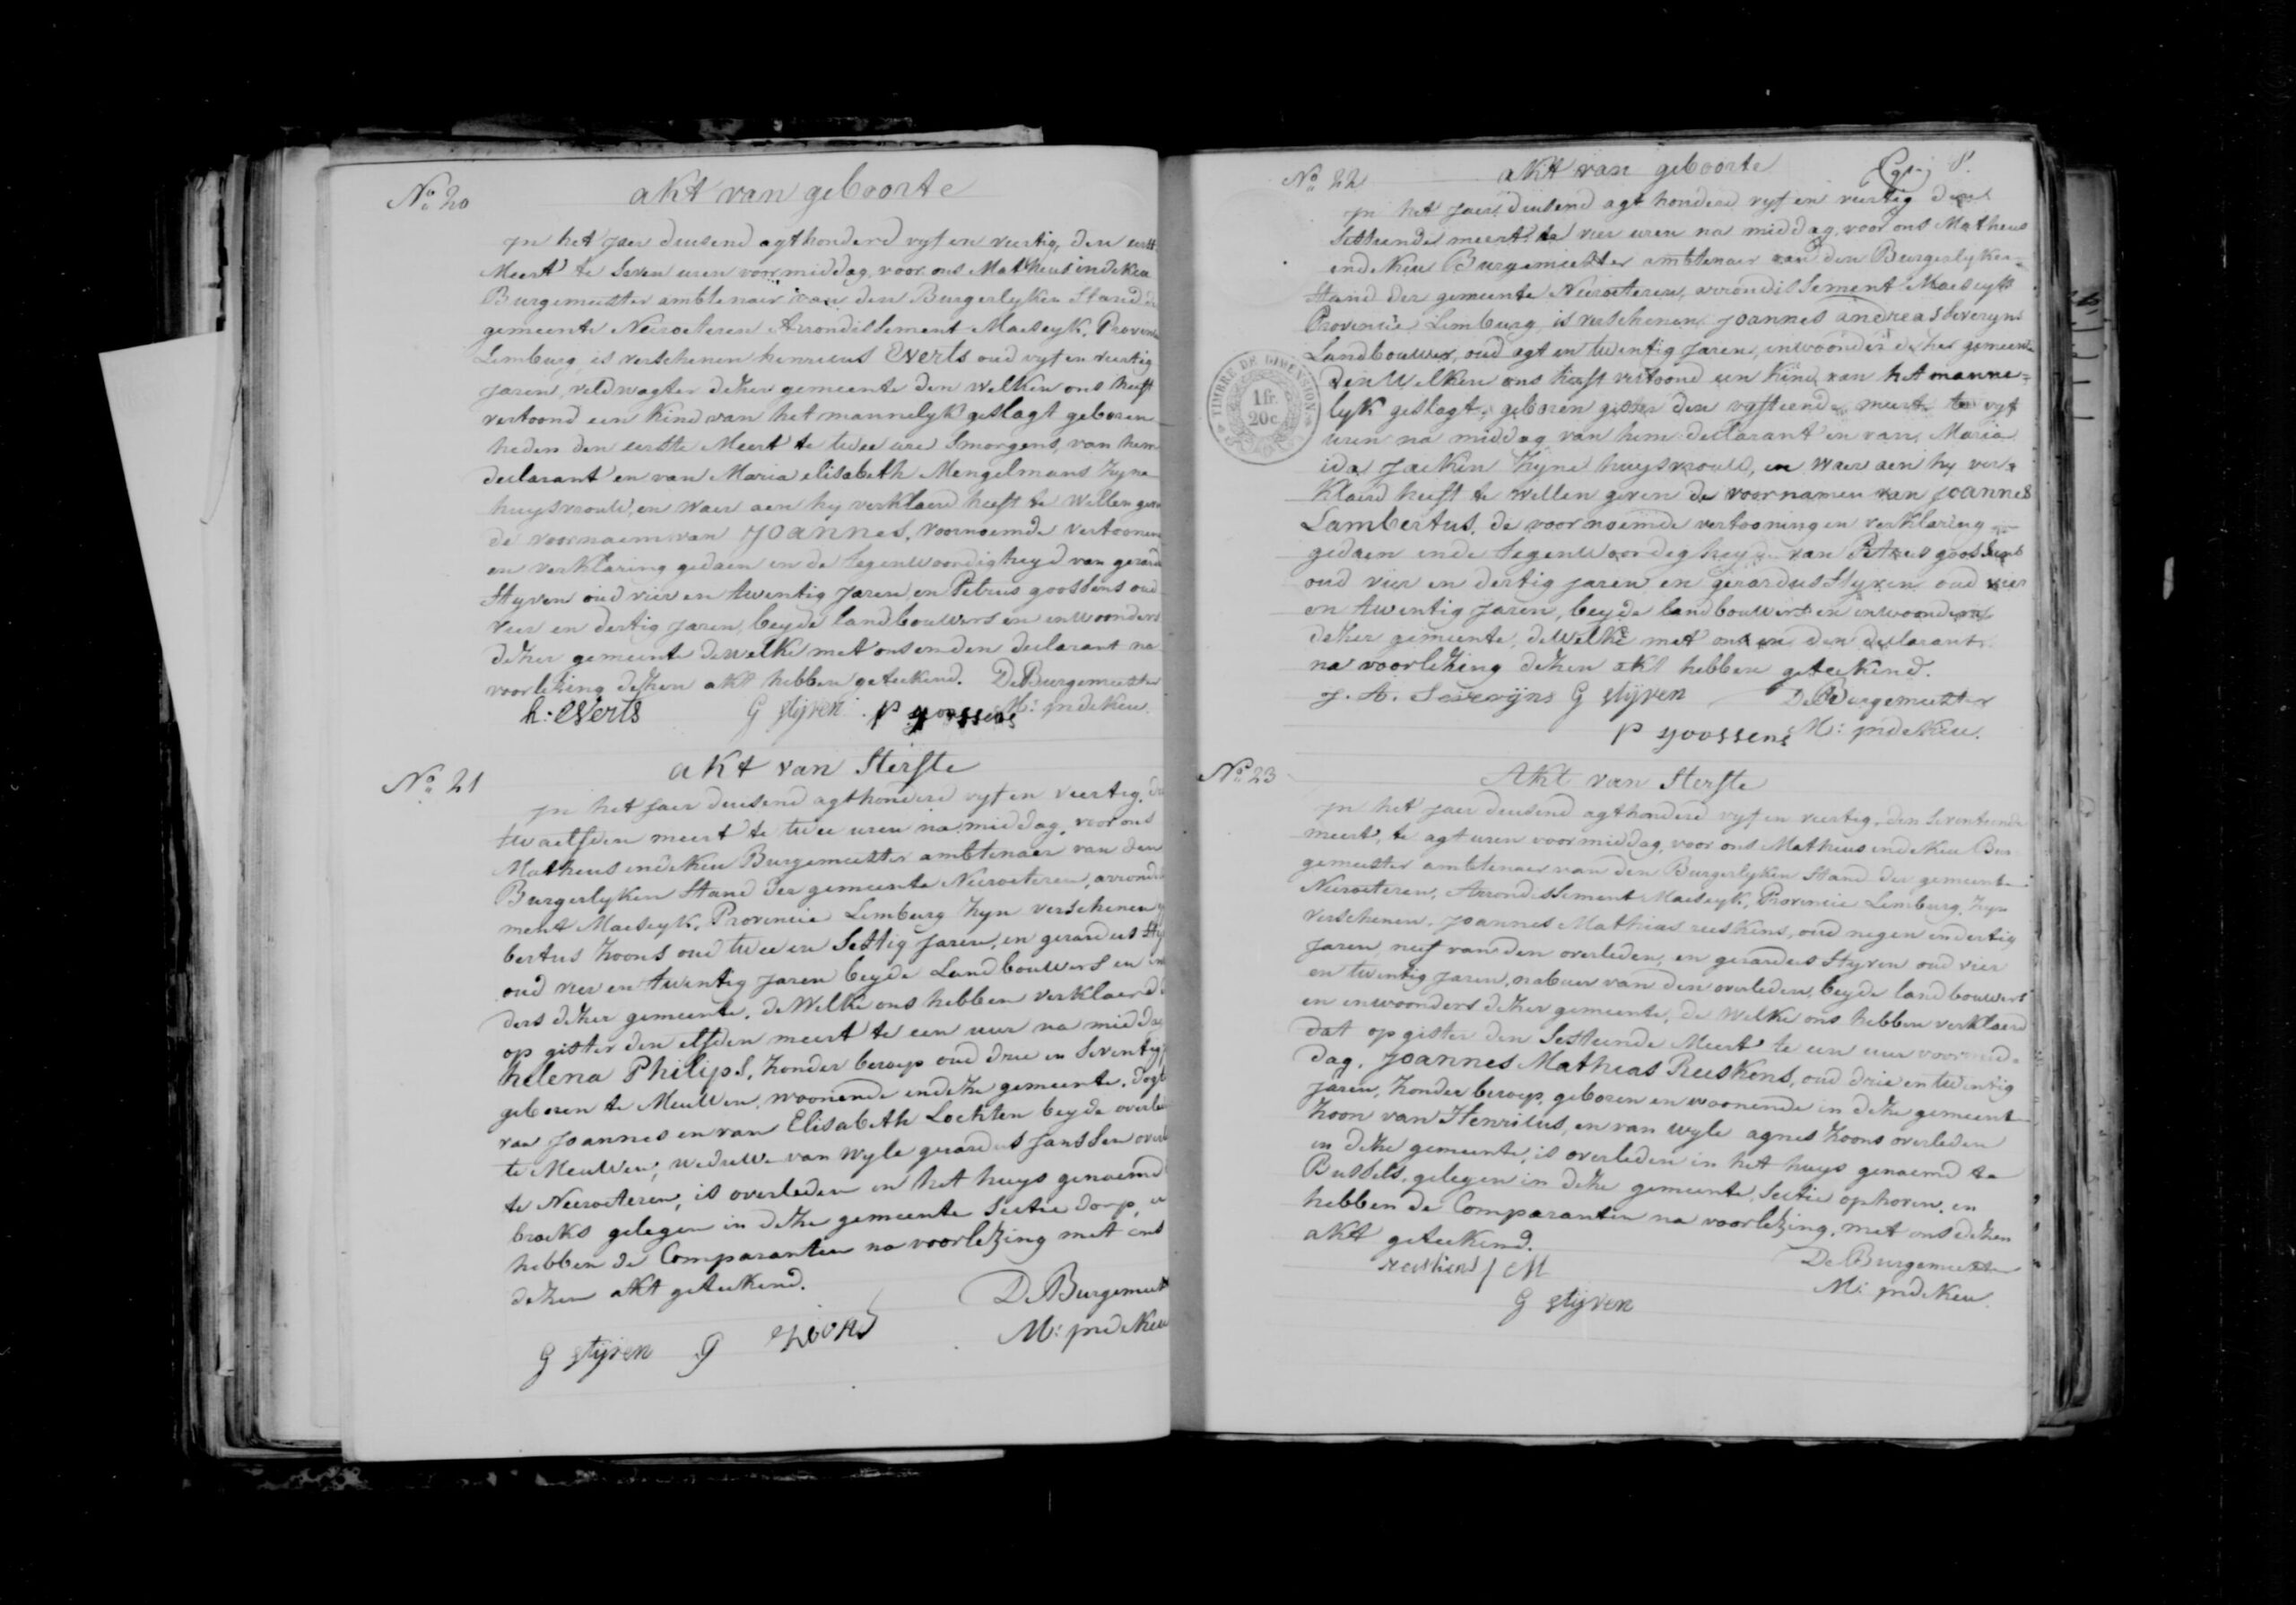 No 20 akt van geboorte
jn het jaer duisend agthonderd vyf en veertig, den eerste
Meert te seven uren voormiddag, voor ons Matheus indekeu
Burgemeester ambtenaer van den Burgerlyken Stand der
gemeente Neeroeteren Arrondissement Maeseyk, Provincie
Limburg, is verschenen henricus Everts oud vyf en veertig
jaren, veldwagter dezer gemeente den welken ons heeft
vertoond een kind van het mannelyk geslagt geboren
heden den eerste Meert te twee ure Smorgens, van hem
declarant en van Maria elisabeth Mengelmans zyne
huysvrouw, en waer aen hy verklaerd heeft te willen geven
de voornaem van Joannes, voornoemde vertooning
en verklaring gedaen in de tegenwoordigheyd van gerard
Styven oud vier en twintig jaren, en Petrus goossens oud
vier en dertig jaren, beyde landbouwers en inwoonders
dezer gemeente dewelke met ons en den declarant na
voorlezing dezen akt hebben geteekend. De Burgemeester
h: Everts G Styven p goossens M: jndekeu.
No 21 akt van Sterfte
jn het jaer duisend agthonderd vyf en veertig, den
twaelfden meert te twee uren na middag, voor ons
Matheus indekeu Burgemeester ambtenaer van den
Burgerlyken Stand der gemeente Neeroeteren, arrondisse
ment Maeseyk, Provincie Limburg zyn verschenen
bertus Zoons oud twee en Sestig jaren, en gerardus Sty
oud vier en twintig jaren beyde Landbouwers en in
ders dezer gemeente, deWelke ons hebben verklaerd
op gister den elfden meert te een uur na middag
helena Philips, zonder beroep oud drie en Seventig
geboren te Meuwen, woonende indeze gemeente, dogt
van Joannes en van Elisabeth Lochten beyde overle
te Meuwen, weduwe van wyle gerardus Janssen over
te Neeroeteren, is overleden in het huys genoemd
broeks gelegen in deze gemeente Sectie dorp, en
hebben de Comparanten na voorlezing met ons
dezen akt geteekend.
De Burgemeest
G Styven G Zoons M: jndekeu
No 22 akt van geboorte 8.
jn het jaer duisend agt honderd vyf en veertig den
Sestiende meert te vier uren na middag, voor ons Matheus
indekeu Burgemeester ambtenaer van den Burgerlyken
Stand der gemeente Neeroeteren, arrondissement Maeseyk
Provincie Limburg, is verschenen, Joannes andreas Severyns
Landbouwer, oud agt en twintig jaren, inwoonder dezer gemeente
den Welken ons heeft vertoond een kind van het manne-
lyk geslagt, geboren gister den vyftiende meert te vyf
uren na middag van hem declarant en van Maria
ida Jacken zyne huysvrouw, en waer aen hy ver-
klaerd heeft te willen geven de voornamen van Joannes
Lambertus, de voornoemde vertooning en verklaring
gedaen inde tegenwoordigheyd van Petrus goossens
oud vier en dertig jaren en gerardus Styven oud vier
en twintig jaren, beyde landbouwers en inwoonders
dezer gemeente, dewelke met ons en den declarant
na voorlezing dezen akt hebben geteekend.
J. A. Severijns G Styven De Burgemeester
p goossens M: jndekeu.
TIMBRE DE DIMENSION
1 fr.
20 c
No 23 Akt van Sterfte
jn het jaer duisend agthonderd vyf en veertig, den seventiende
meert, te agt uren voormiddag, voor ons Matheus indekeu Bur
gemeester ambtenaer van den Burgerlyken Stand der gemeente
Neeroeteren, Arrondissement Maeseyk, Provincie Limburg, zyn
verschenen, Joannes Mathias reeskens, oud negen en dertig
jaren, neef van den overleden, en gerardus Styven oud vier
en twintig jaren, nabuer van den overleden, beyde landbouwers
en inwoonders dezer gemeente, de welke ons hebben verklaerd
dat op gister den Sestiende Meert te een uur voormid-
dag, Joannes Mathias Reeskens, oud drie en twintig
jaren, zonder beroep, geboren en woonende in deze gemeente
Zoon van Henricus, en van wyle agnes Zoons overleden
in deze gemeente, is overleden in het huys genoemd te
Bussels, gelegen in deze gemeente, Sectie ophoven, en
hebben de Comparanten na voorlezing, met ons dezen
akt geteekend.
De Burgemeester
G Styven M: jndekeu.